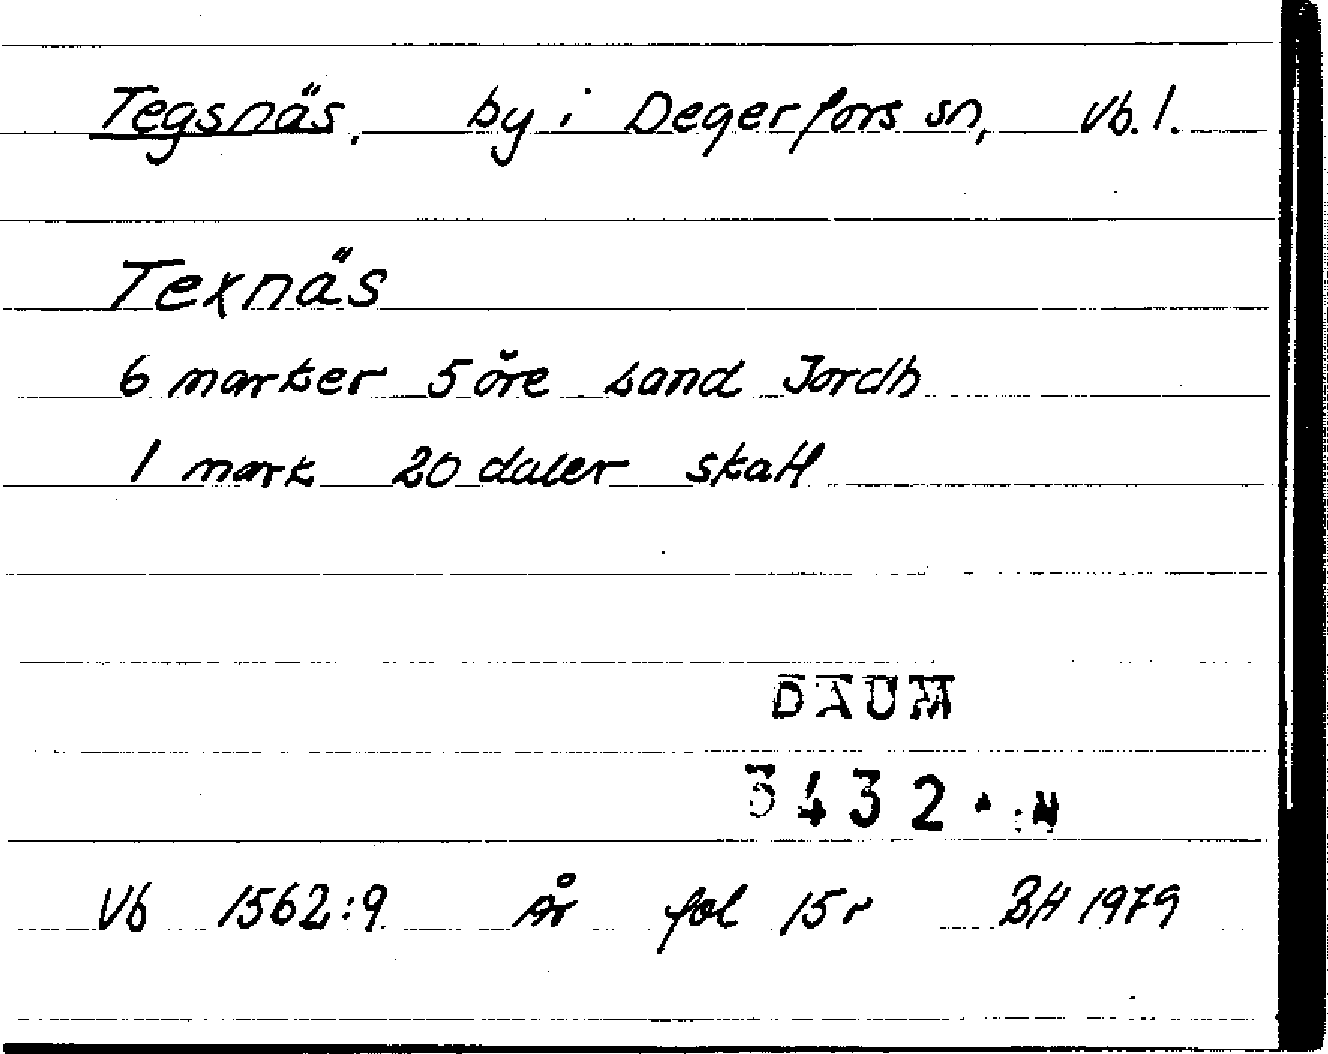 Tegsnäs, by i Degerfors sn, Vb. l.
Texnäs
6 marker 5 öre Land Jordh
1 mark 20 daler skatt
DAUM
3432
Vb 1562:9 År fol 15r BH 1979